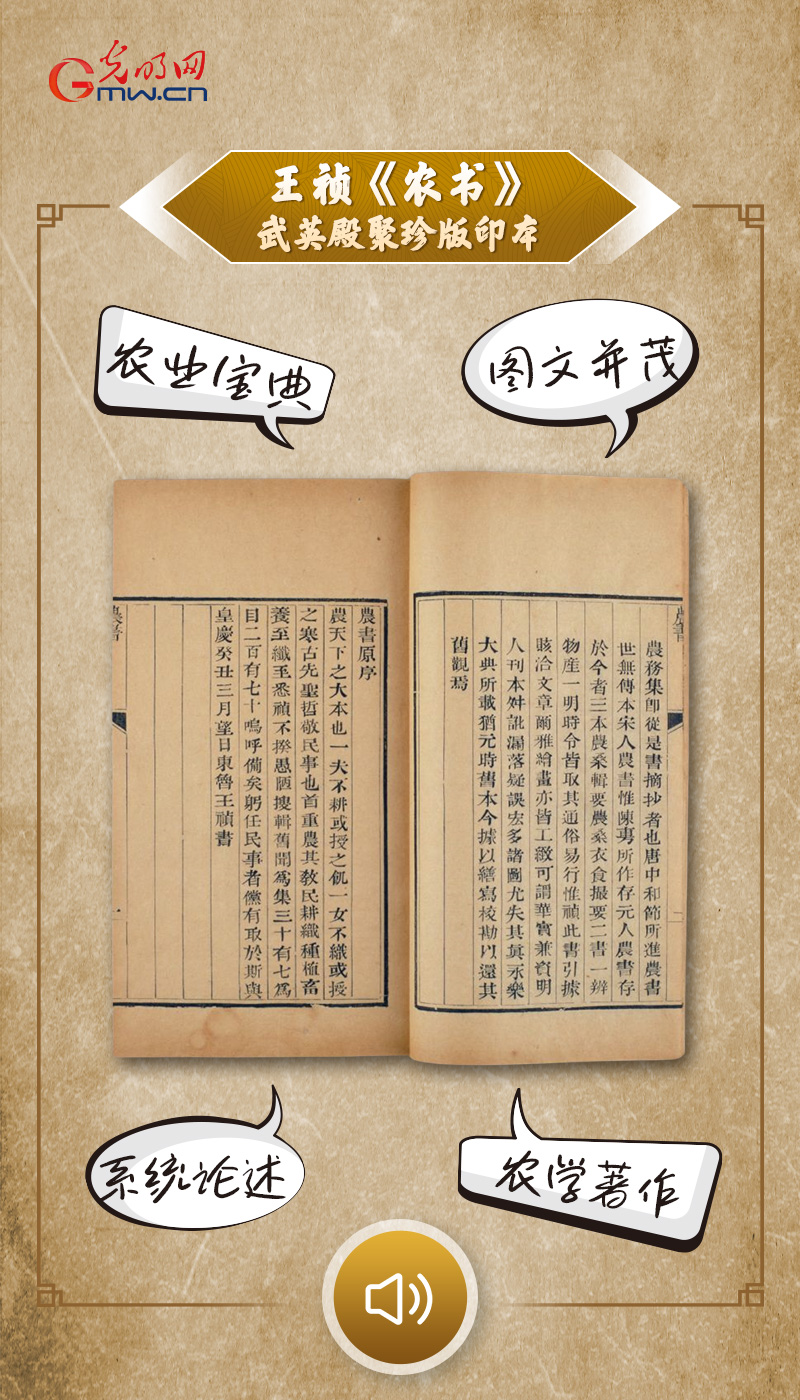 光明网
GMW.CN
王祯《农书》
武英殿聚珍版印本
农业宝典
图文并茂
農務集卽從是書摘抄者也唐中和節所進農書
世無傳本宋人農書惟陳旉所作存元人農書存
於今者三本農桑輯要農桑衣食撮要二書一辨
物産一明時令皆取其通俗易行惟禎此書引據
賅洽文章爾雅繪畫亦皆工緻可謂華實兼資明
人刊本舛訛漏落疑誤宏多諸圖尤失其眞永樂
大典所載猶元時舊本今據以繕寫校勘以還其
舊觀焉
農書原序
農天下之大本也一夫不耕或授之飢一女不織或授
之寒古先聖哲敬民事也首重農其教民耕織種植畜
養至纖至悉禎不揆愚陋搜輯舊聞爲集三十有七爲
目二百有七十嗚呼備矣躬任民事者儻有取於斯與
皇慶癸丑三月望日東魯王禎書
系统论述
农学著作